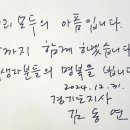 리 모두의 아픔입니다.
까지 함께 하겠습니다.
생자분들의 명복을 빕니다.
2024. 12. 31.
경기도지사
김동연